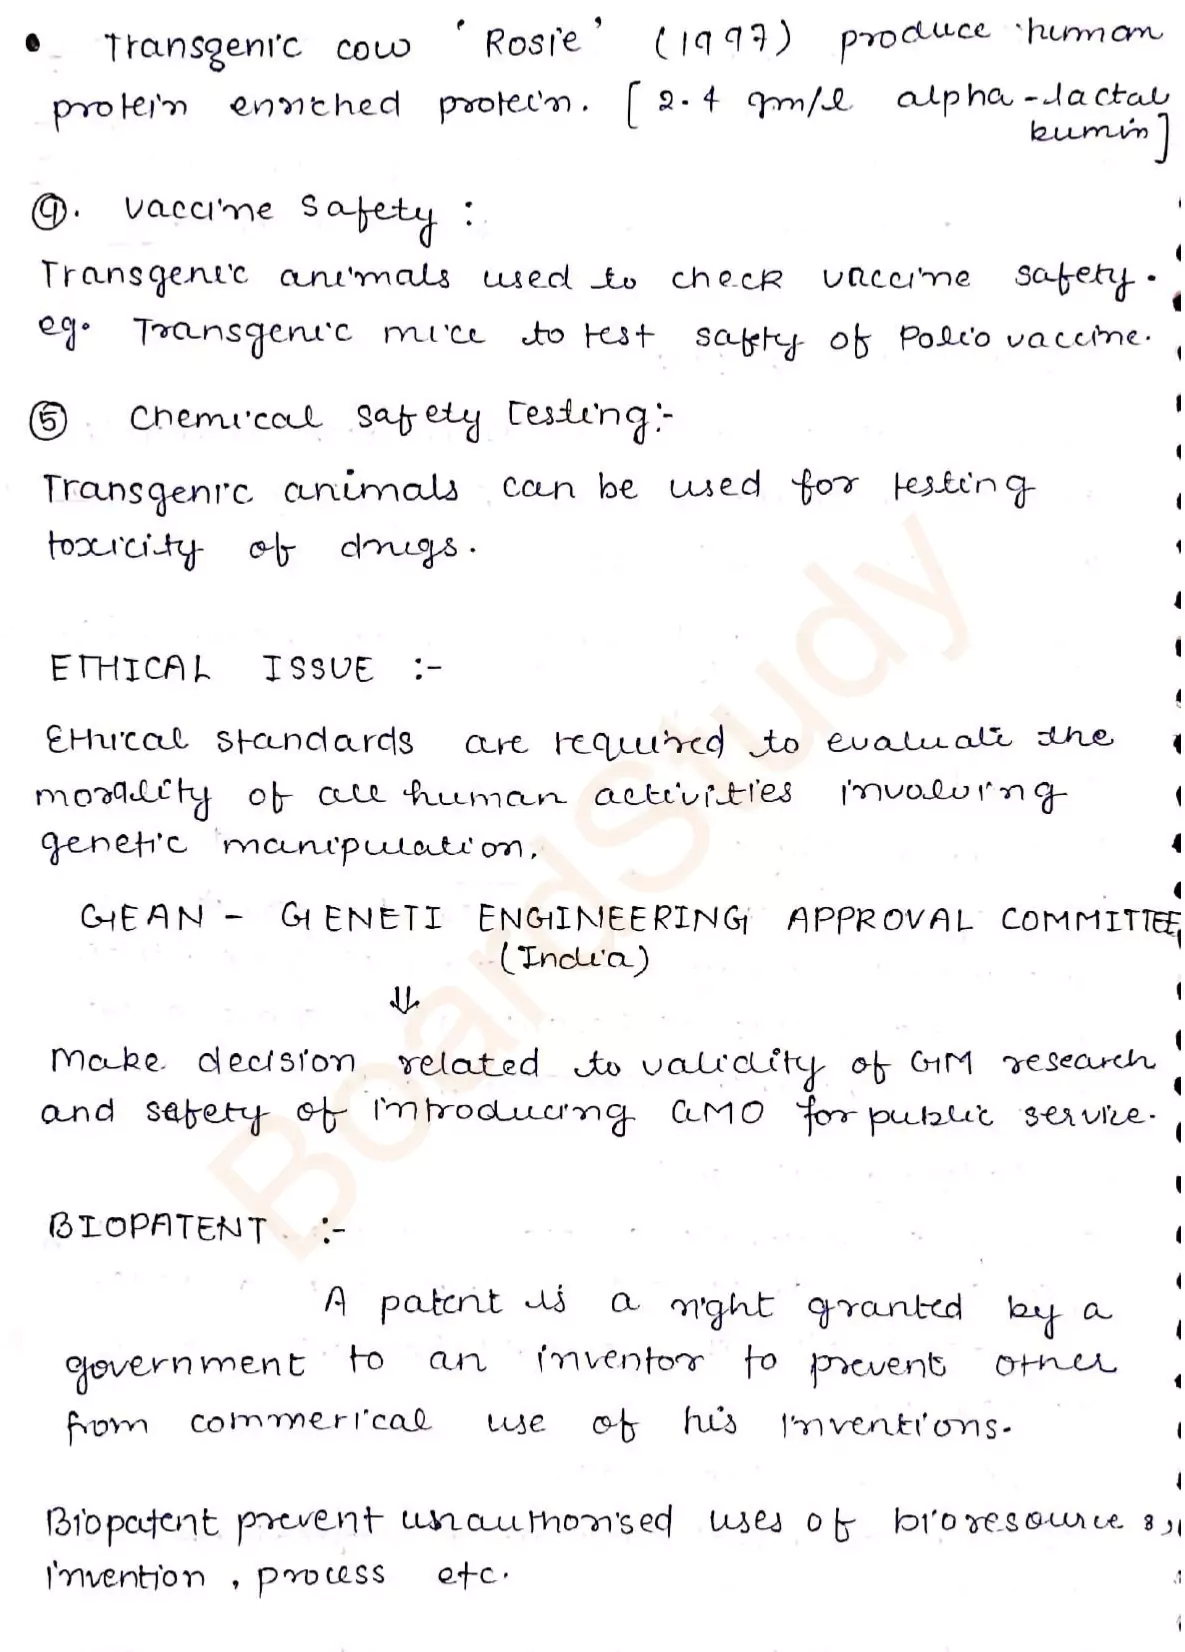 • Transgenic cow 'Rosie' (1997) produce human
protein enriched protein. [2.4 gm/l alpha-lactal
bumin]
④. Vaccine Safety :
Transgenic animals used to check vaccine safety.
eg. Transgenic mice to test safty of Polio vaccine.
⑤ Chemical safety Testing:-
Transgenic animals can be used for testing
toxicity of drugs.
ETHICAL ISSUE :-
Ethical standards are required to evaluate the
morality of all human activities involving
genetic manipulation.
GEAN - GENETI ENGINEERING APPROVAL COMMITTEE
(India)
⇓
Make decision related to validity of GM research
and safety of introducing GMO for public service.
BIOPATENT :-
A patent is a right granted by a
government to an inventor to prevent other
from commerical use of his inventions.
Biopatent prevent unauthorised uses of bioresource &
invention, process etc.
BoardStudy